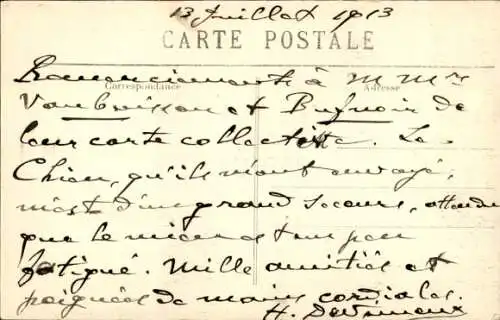 13 Juillet 1913
CARTE POSTALE
Correspondance
Adresse
Remerciements à M Mme
et Bufnoir de
leur carte collective. Le
Chien, qu'ils m'ont envoyé,
m'est d'un grand secours, attendu
que le mien est un peu
fatigué. Mille amitiés et
poignées de mains cordiales.
H.